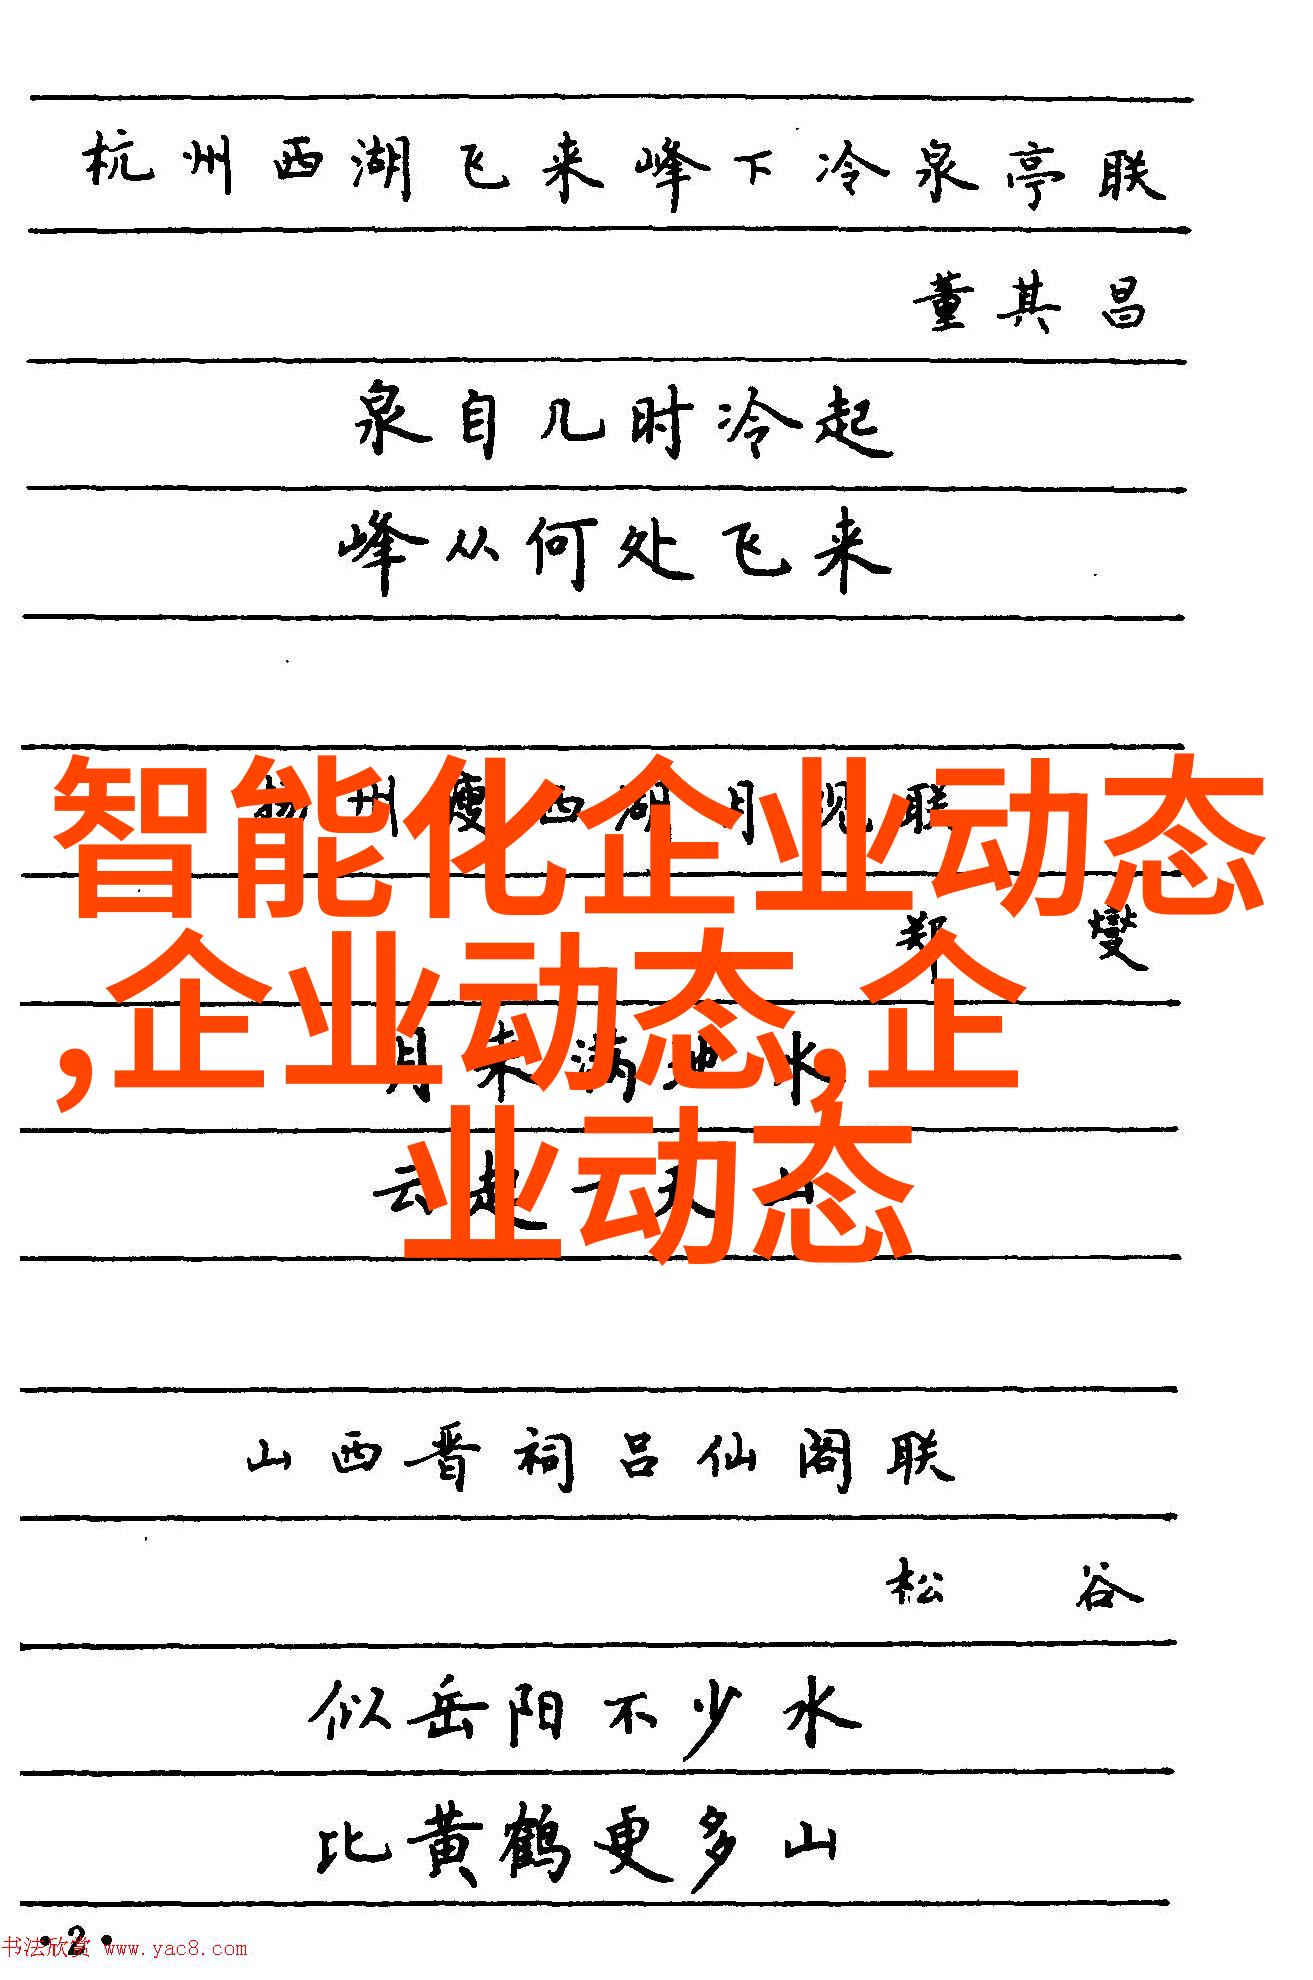 杭州西湖飞来峰下冷泉亭联
董其昌
泉自几时冷起
峰从何处飞来
扬州瘦西湖月观联
智能化企业动态
郑燮
,企业动态,企
月来满地水
业动态
云起一天山
山西晋祠吕仙阁联
松谷
似岳阳不少水
比黄鹤更多山
·2·
书法欣赏 www.yac8.com